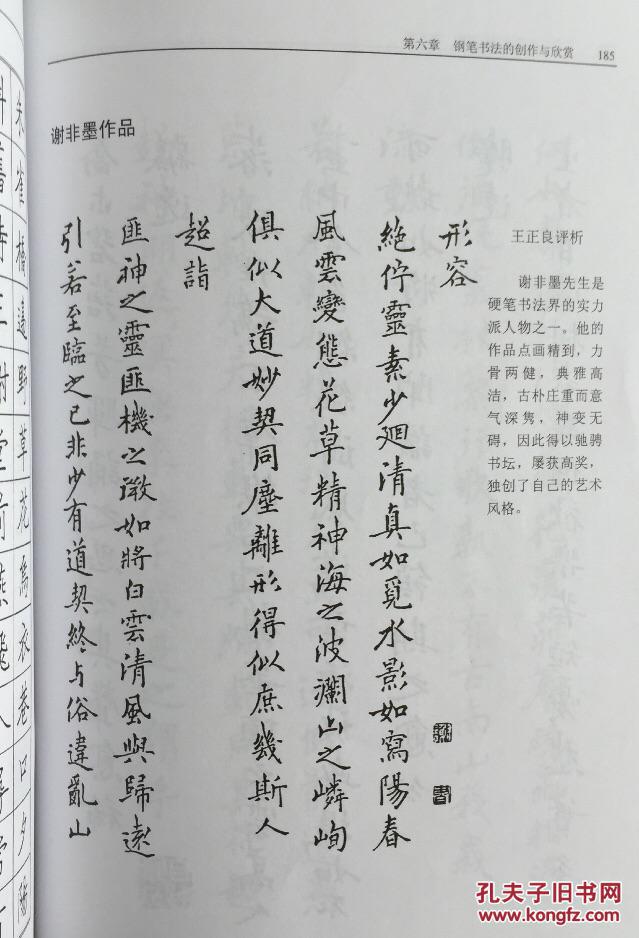 第六章 钢笔书法的创作与欣赏 185
谢非墨作品
王正良评析
谢非墨先生是
硬笔书法界的实力
派人物之一。他的
作品点画精到，力
骨两健，典雅高
洁，古朴庄重而意
气深隽，神变无
碍，因此得以驰骋
书坛，屡获高奖，
独创了自己的艺术
风格。
形容
絶佇靈素少廻清真如覓水影如寫陽春
風雲變態花草精神海之波瀾山之嶙峋
俱似大道妙契同塵離形得似庶幾斯人
超詣
匪神之靈匪機之微如將白雲清風與歸遠
引若至臨之已非少有道契終与俗違亂山
朱雀橋邊野草花烏衣巷口夕陽
孔夫子旧书网
www.kongfz.com